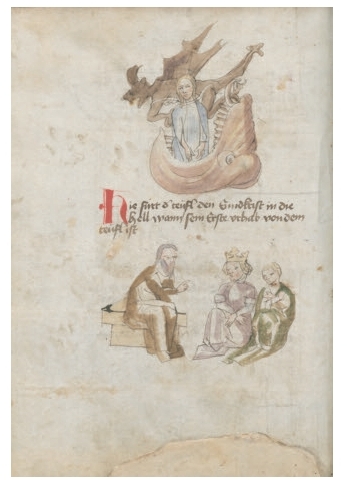 Hie fürt d' teifl den Endkrist in die
hell wann sein erste vrhab von dem
teufl ist